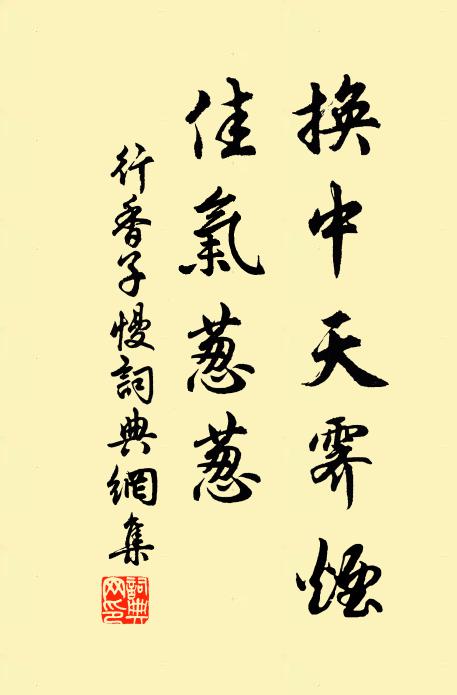 換中天霽煙
佳氣葱葱
行香子慢詞典網集
詞典網印